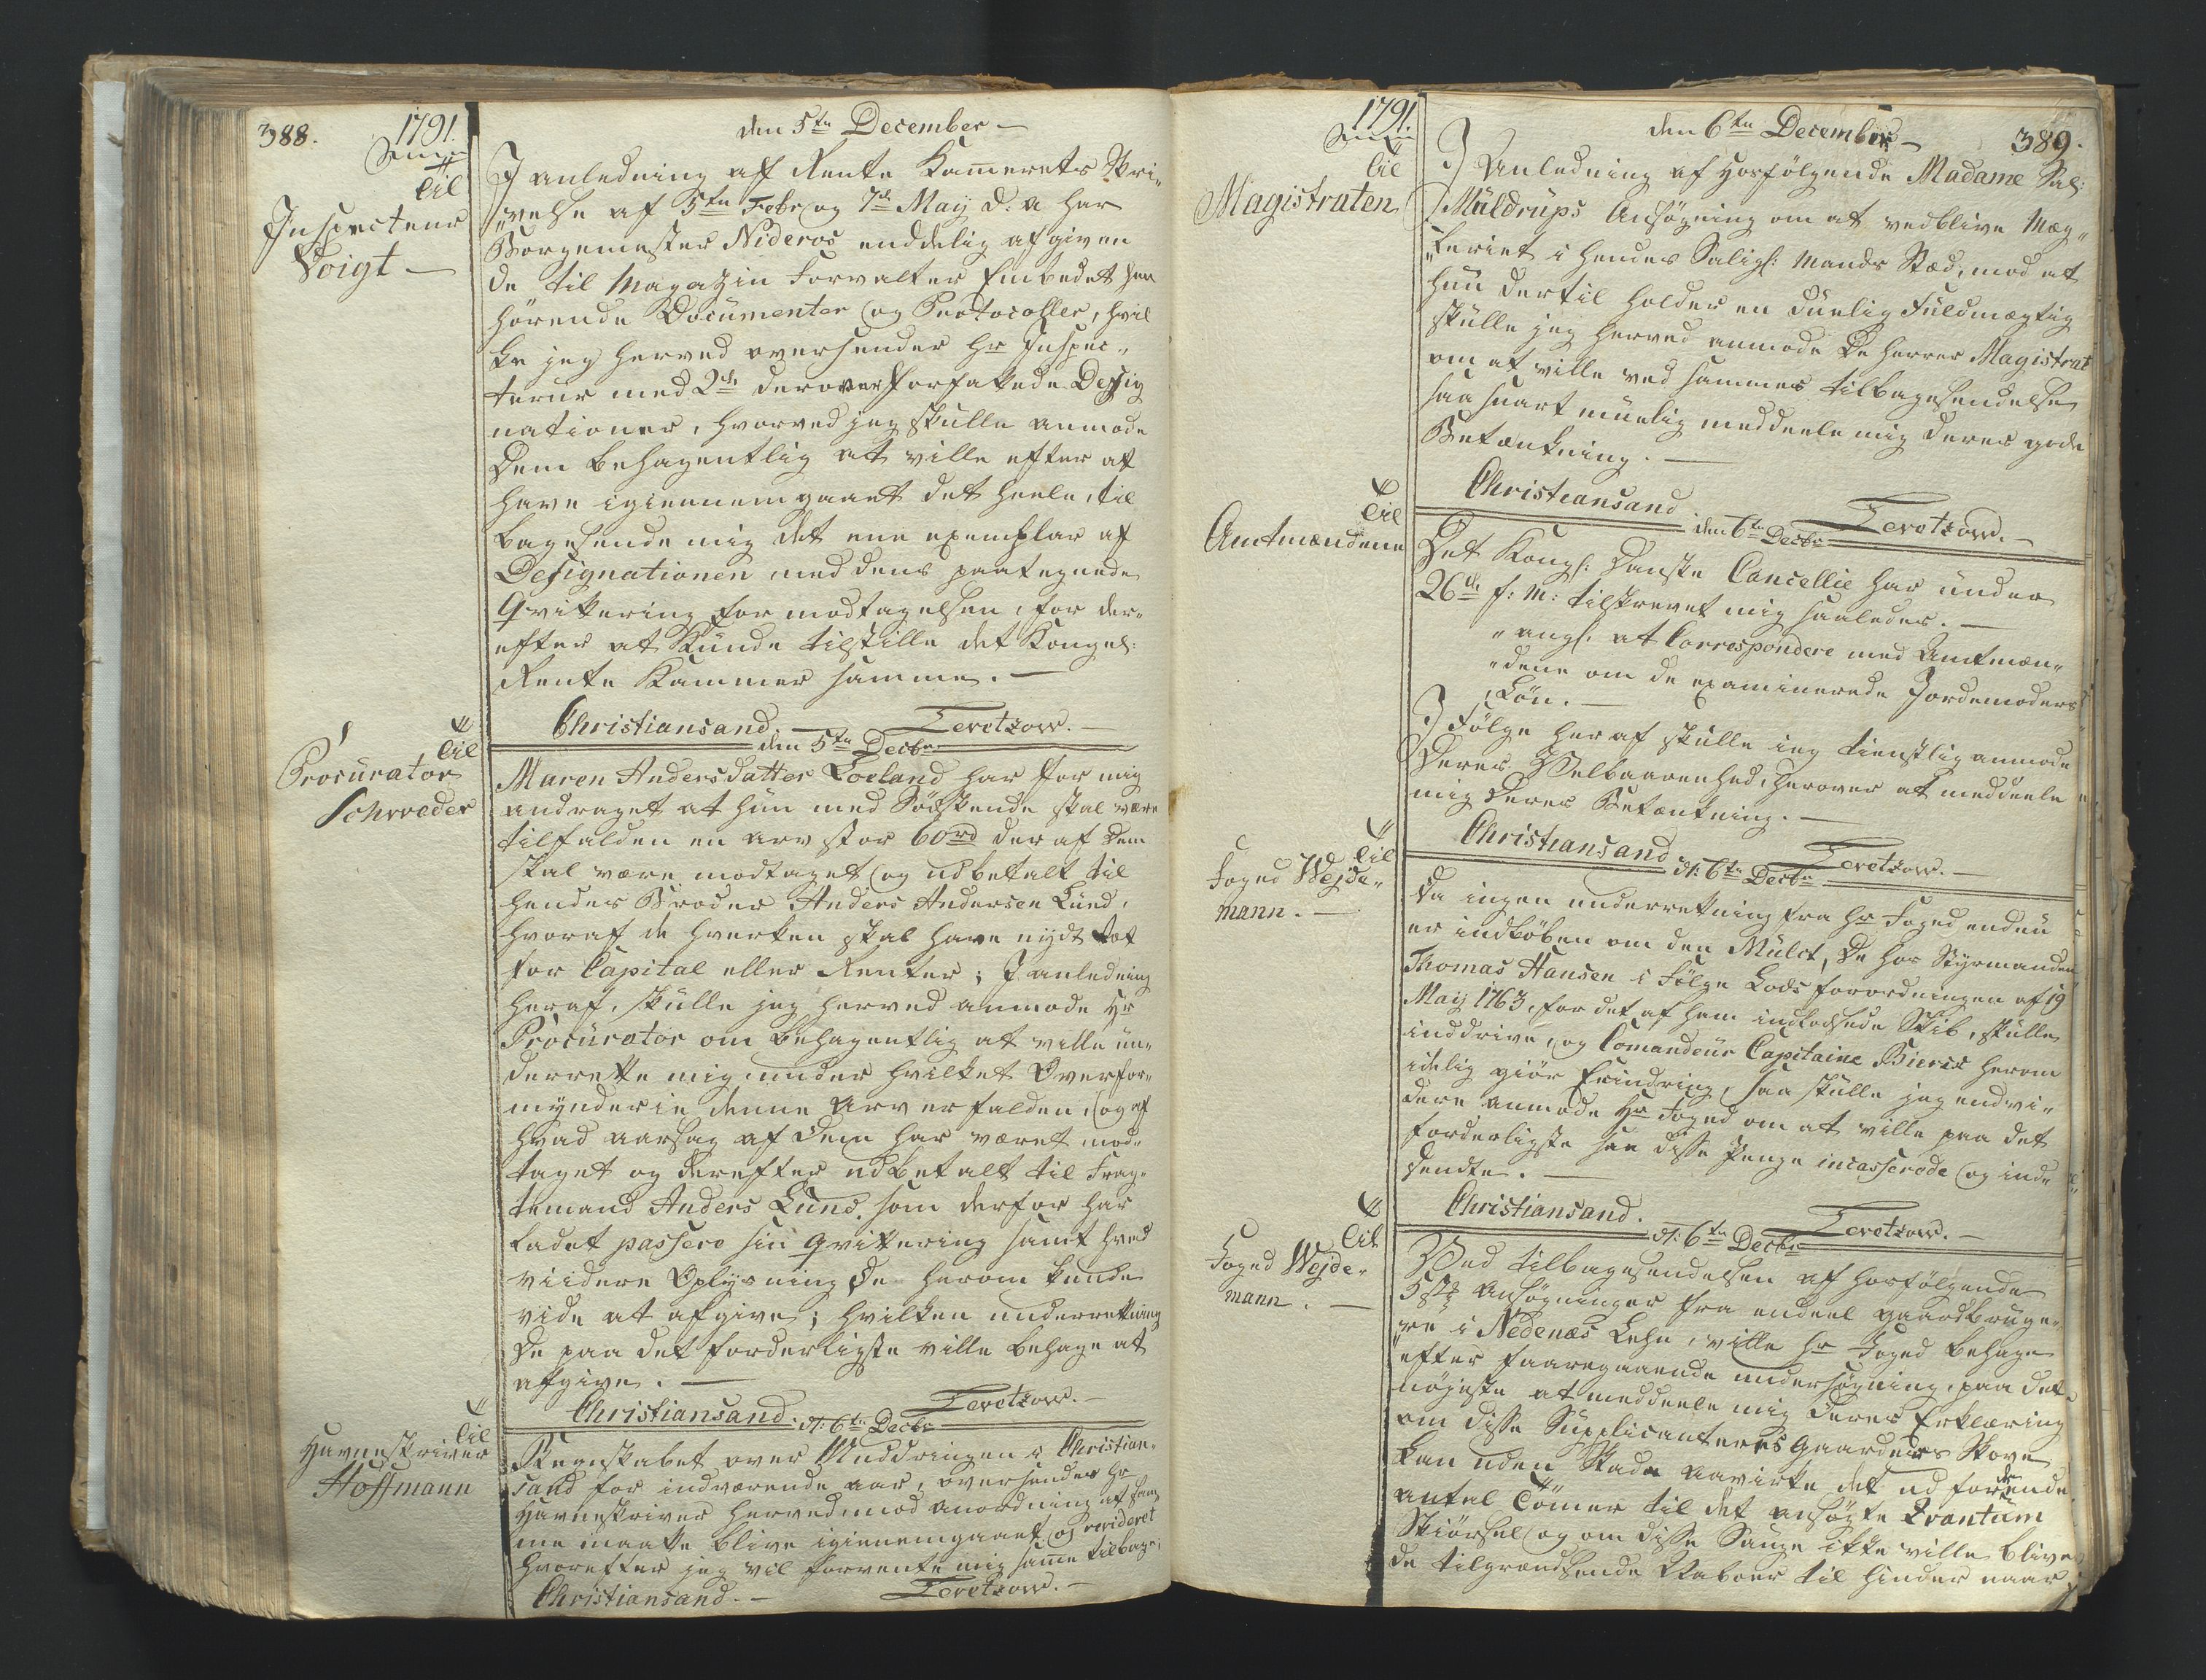 388.
1791.
den 5te December —
Til
Inspecteur
Voigt —
I anledning af Rente Kam̅erets Skri„
„velse af 5te Febr og 7de Maij d: a har
Borgemester Nideros enddelig afgiven
de til Magazin Forvalter Embedet hen
hörende Documenter og Protocoller, hvil
ke jeg herved oversender Hr Inspec„
teur med 2de derover forfattede Desig
nationer, hvorved jeg skulle anmode
Dem behagentlig at ville efter at
have igiennemgaaet det heele, til
bagesende mig det ene exemplar af
Designationen med dens paategnede
Qvittering for modtagelsen, for der„
efter at kunde tilstille det Kongel:
Rente Kammer samme. —
Christiansand. — Levetzow. —
den 5te Decbr
Til
Procurator
Schrøeder
Maren Andersdatter Loeland har for mig
andraget at hun med Södskende skal være
tilfalden en arv stor 60rd der af Dem
skal være modtaget og udbetalt til
hendes Broder Anders Andersen Lund,
hvoraf de hverken skal have nydt
for Capital eller Renter; I anledning
heraf, skulle jeg herved anmode Hr
Procurator om behagentlig at ville un„
derrette mig under hvilket Overfor„
mynderie denne Arv er falden, og af
hvad aarsag af Dem har været mod„
taget og derefter udbetalt til Frag„
temand Anders Lund, som derfor har
ladet passere sin Qvittering samt hvad
viidere Oplysning De herom kunde
vide at afgive; hvilken underretning
De paa det forderligste ville behage at
afgive. —
Christiansand. Levetzow. —
d: 6te Decbr
Til
Havneskriver
Hoffmann
Regnskabet over Muddringen i Christian„
sand for indværende aar, oversendes Hr
Havneskriver herved, mod anordning at sam„
me maatte blive igiennemgaaet og revideret
hvorefter jeg vil forvente mig sam̅e tilbage.
Christiansand. — Levetzow. —
1791.
den 6te December —
389.
Til
Magistraten
I Anledning af hosfölgende Madame Sal:
Müldrups Ansögning om at vedblive Mæg„
„leriet i hendes Salig: Mands Stæd, mod at
hun dertil holder en duelig Fuldmægtig
skulle jeg herved anmode De Herrer Magistrat
om at ville ved sammes tilbagesendelse
saa snart muelig meddeele mig Deres gode
Betænkning. —
Christiansand Levetzow. —
den 6te Decbr
Til
Amtmændene
Det Kongl: Danske Cancellie har under
26de f: M: tilskrevet mig saaledes. —
„angl: at Correspondere med Amtmæn„
„dene om de examinerede Jordemoders
Lön. —
I Fölge heraf skulle jeg tienstlig anmode
Deres Velbaarenhed, herover at meddeele
mig Deres Betænkning. —
Christiansand Levetzow. —
d: 6te Decbr
Til
Foged Wejde„
mann. —
Da ingen underretning fra Hr Foged endnu
er indlöben om den Mulct, De hos Styrmanden
Thomas Hansen i Fölge Lods forordningen af 19
Maij 1763, for det af ham indlodsede Skib, skulle
inddrive, og Comandeur Capitaine Bieris herom
idelig giör Erindring, saa skulle jeg endvi„
dere anmode Hr Foged om at ville paa det
forderligste see disse Penge incasserede og ind„
sendte. —
Christiansand. Levetzow. —
d: 6te Decbr
Til
Foged Wejde„
mann. —
Ved tilbagesendelsen af hosfölgende
5 st: Ansögninger fra endeel gaardbruge„
re i Nedenæs Lehn, ville Hr Foged behage
efter foaregaaende undersögning, paa det
nöjeste at meddeele mig Deres Erklæring
om disse Supplicanteres Gaarders Skove
kan uden Skade aavirke det ud fordrende
antal Tömer til det ansögte Qvantum
Skiörsel og om disse Sauge ikke ville blive
de tilgrændsende Naboer til hinder naar